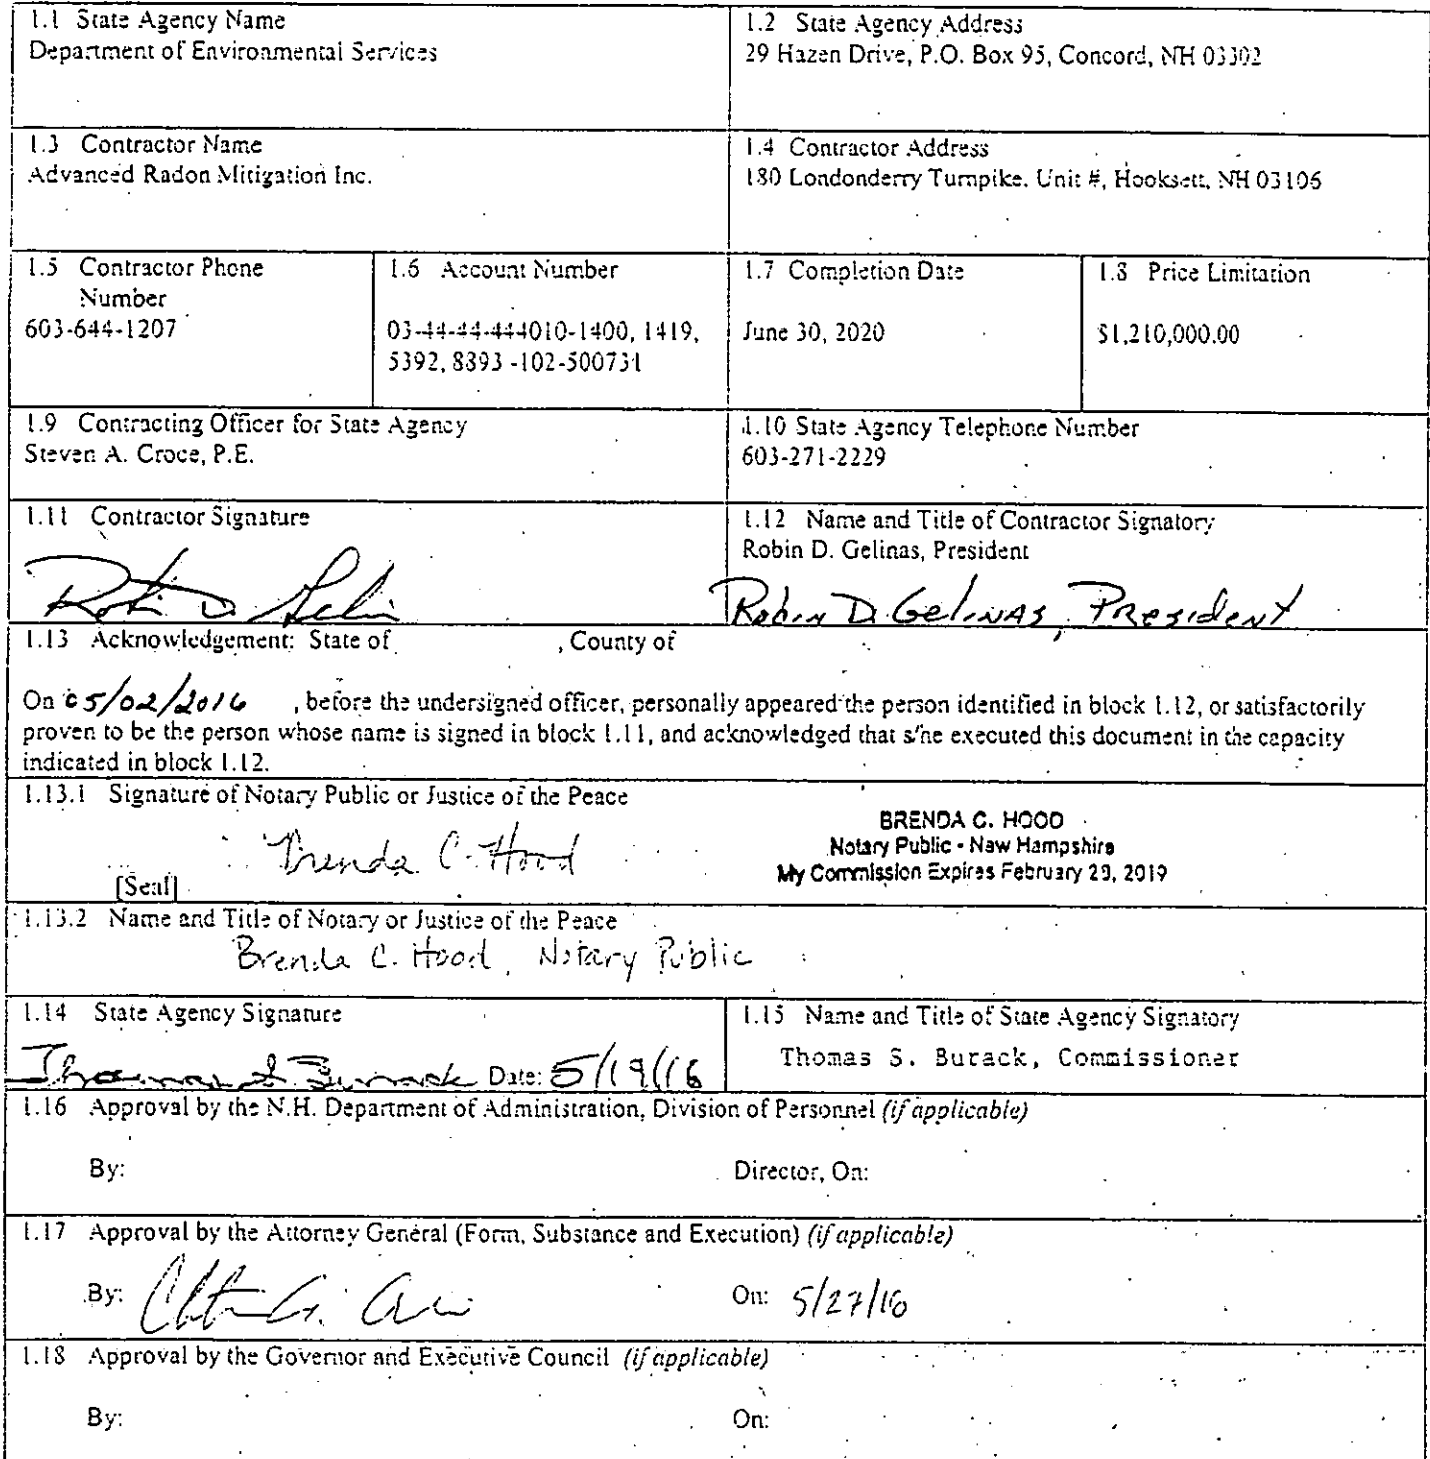 1.1 State Agency Name
Department of Environmental Services
1.2 State Agency Address
29 Hazen Drive, P.O. Box 95, Concord, NH 03302
1.3 Contractor Name
Advanced Radon Mitigation Inc.
1.4 Contractor Address
180 Londonderry Turnpike. Unit #, Hooksett, NH 03106
1.5 Contractor Phone
Number
603-644-1207
1.6 Account Number
03-44-44-444010-1400, 1419,
5392, 8893 -102-500731
1.7 Completion Date
June 30, 2020
1.8 Price Limitation
$1,210,000.00
1.9 Contracting Officer for State Agency
Steven A. Croce, P.E.
1.10 State Agency Telephone Number
603-271-2229
1.11 Contractor Signature
1.12 Name and Title of Contractor Signatory
Robin D. Gelinas, President
Robin D. Gelinas, President
1.13 Acknowledgement: State of , County of
On 05/02/2016 , before the undersigned officer, personally appeared the person identified in block 1.12, or satisfactorily
proven to be the person whose name is signed in block 1.11, and acknowledged that s/he executed this document in the capacity
indicated in block 1.12.
1.13.1 Signature of Notary Public or Justice of the Peace
Brenda C. Hood
[Seal]
BRENDA C. HOOD
Notary Public - New Hampshire
My Commission Expires February 20, 2019
1.13.2 Name and Title of Notary or Justice of the Peace
Brenda C. Hood, Notary Public
1.14 State Agency Signature
Thomas S. Burack Date: 5/19/16
1.15 Name and Title of State Agency Signatory
Thomas S. Burack, Commissioner
1.16 Approval by the N.H. Department of Administration, Division of Personnel (if applicable)
By: Director, On:
1.17 Approval by the Attorney General (Form, Substance and Execution) (if applicable)
By: On: 5/27/16
1.18 Approval by the Governor and Executive Council (if applicable)
By: On: